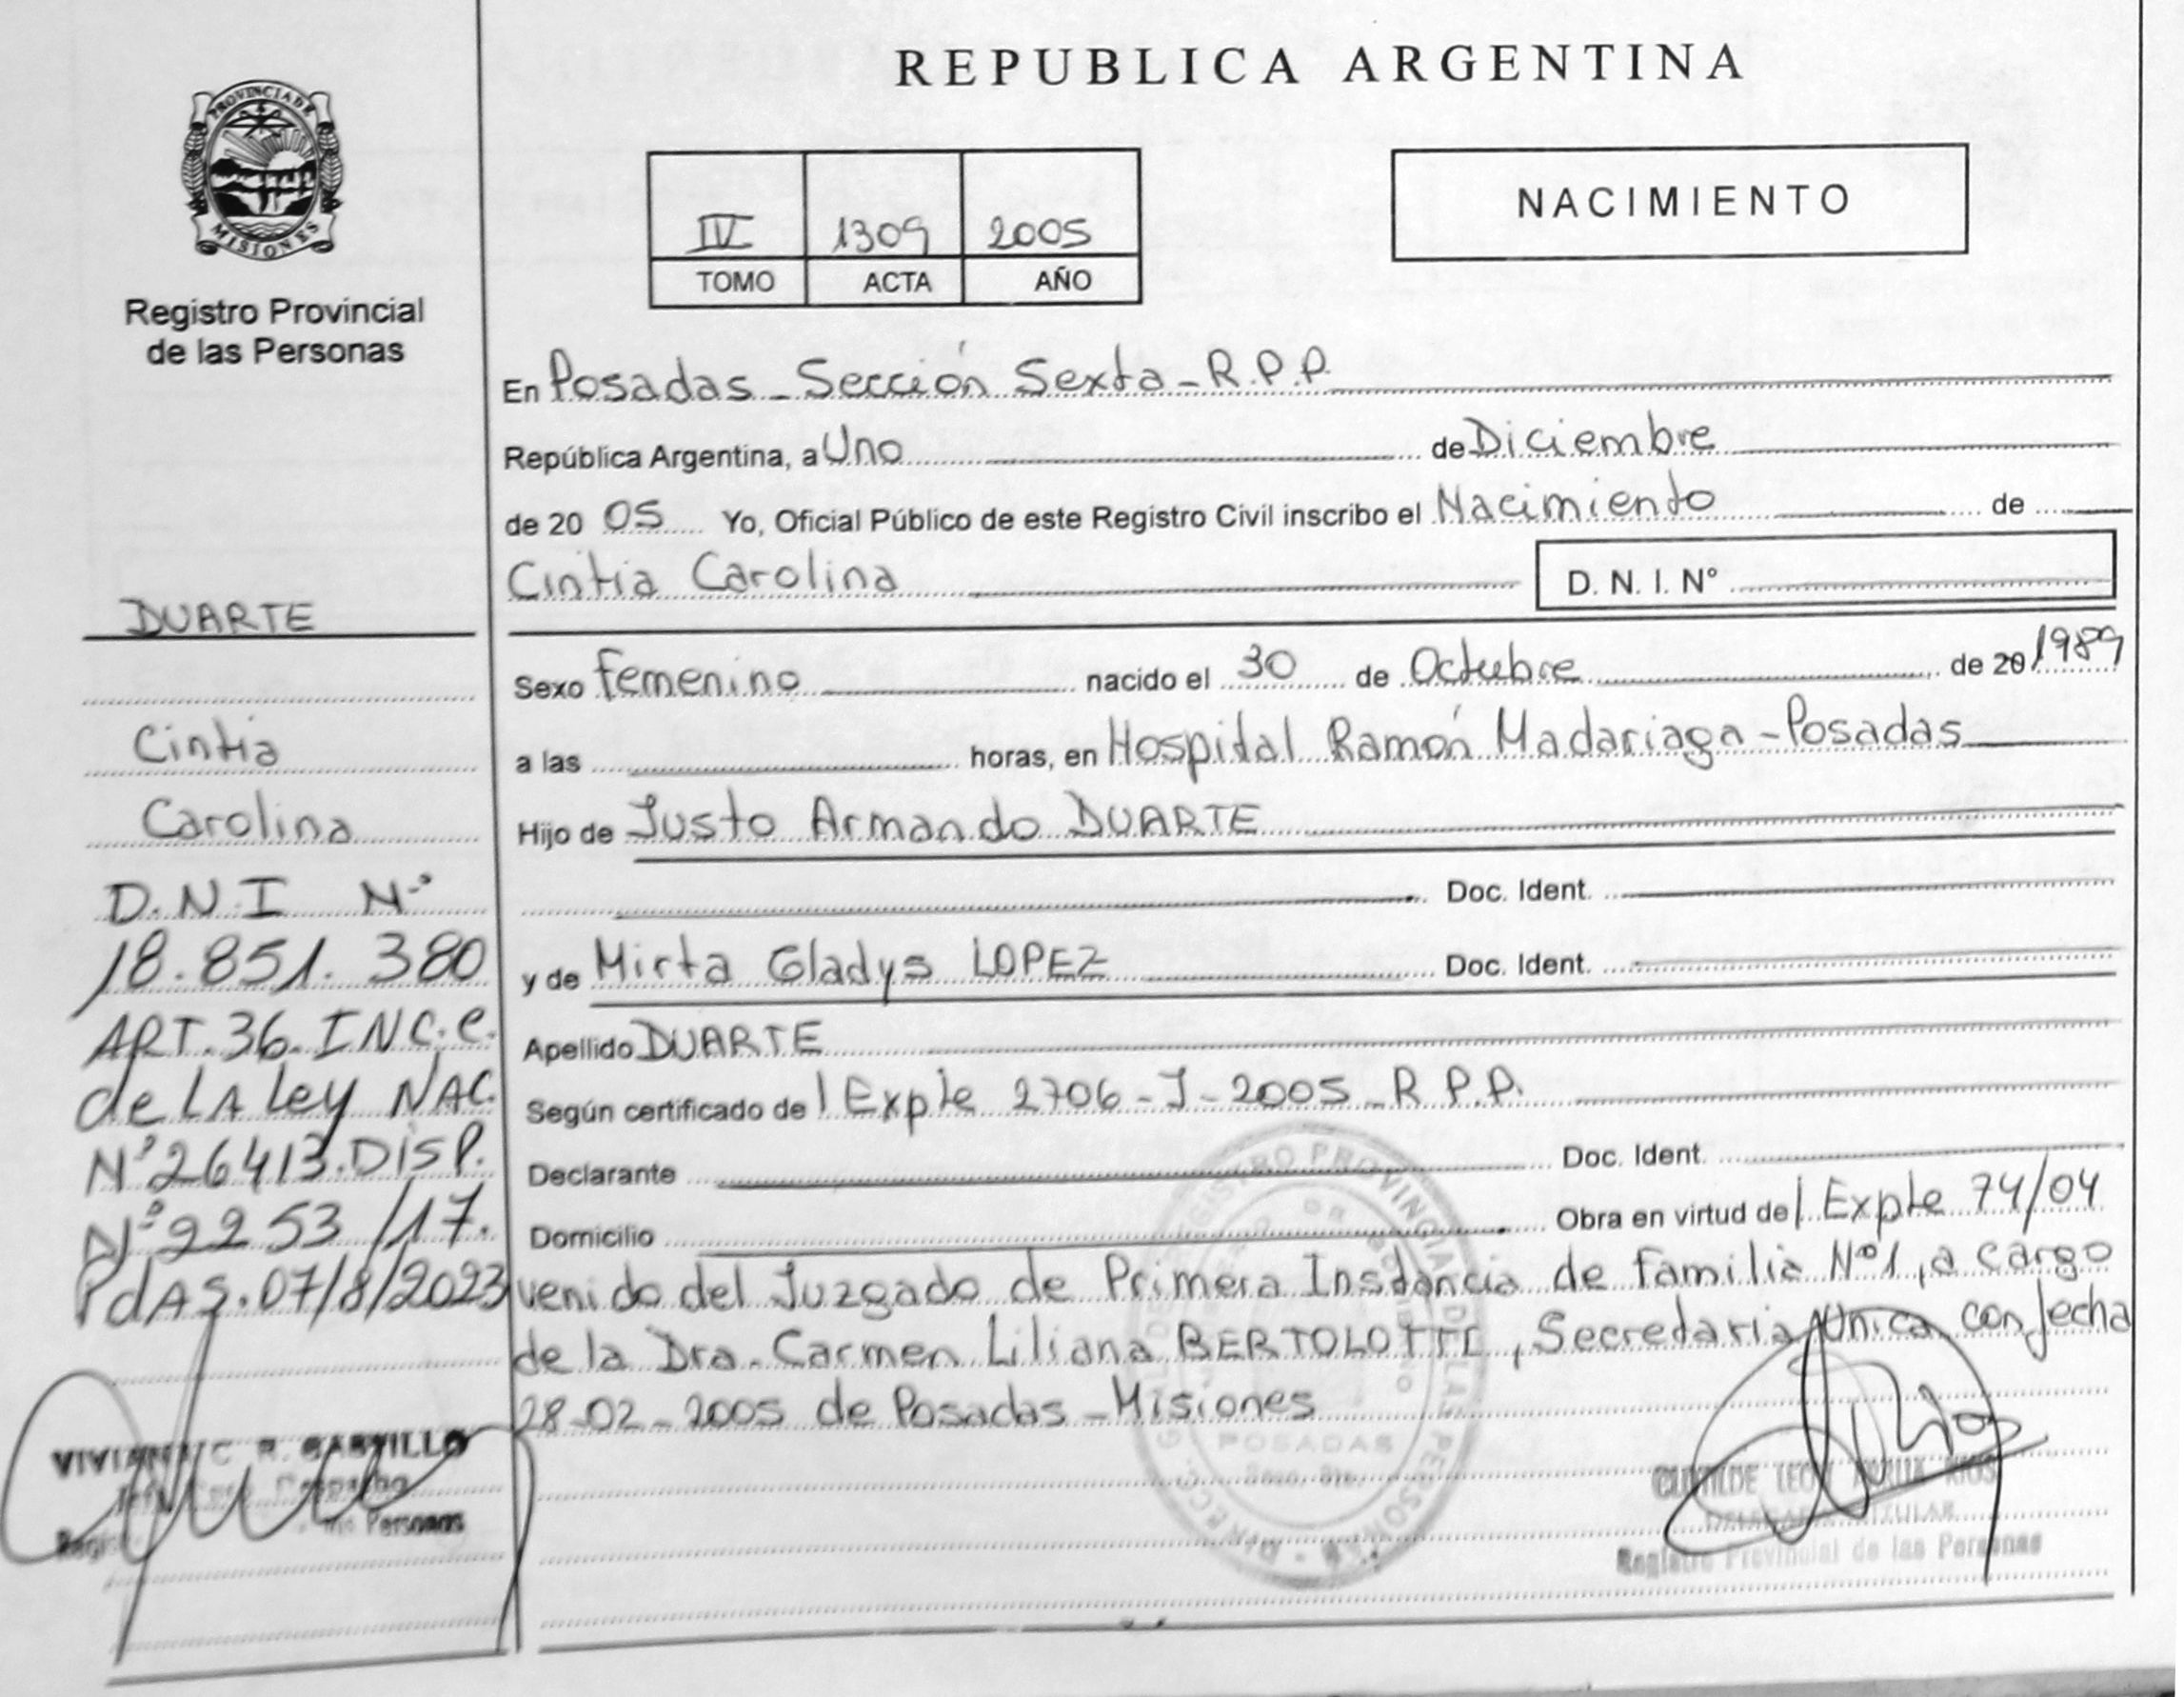 REPUBLICA ARGENTINA
PROVINCIA DE
MISIONES
Registro Provincial
de las Personas
IV 1309 2005
TOMO ACTA AÑO
NACIMIENTO
En Posadas - Sección Sexta - R.P.P.
República Argentina, a Uno de Diciembre
de 20 05 Yo, Oficial Público de este Registro Civil inscribo el Nacimiento de
Cintia Carolina D. N. I. N°
Sexo Femenino nacido el 30 de Octubre de 20/1989
a las horas, en Hospital Ramón Madariaga - Posadas
Hijo de Justo Armando DUARTE
Doc. Ident.
y de Mirta Gladys LOPEZ Doc. Ident.
Apellido DUARTE
Según certificado de / Expte 2706 - J - 2005 - R P.P.
Declarante Doc. Ident.
Domicilio Obra en virtud de / Expte 74/04
venido del Juzgado de Primera Instancia de Familia Nº1, a cargo
de la Dra. Carmen Liliana BERTOLOTTI, Secretaria Unica, con fecha
28-02-2005 de Posadas - Misiones
DUARTE
Cintia
Carolina
D.N.I Nº
18.851.380
ART.36.INC.C.
de LA Ley NAC.
Nº26413.DISP.
Nº2253/17.
PdAS.07/8/2023
REGISTRO PROVINCIAL DE LAS PERSONAS
POSADAS
Personas
DELEGADA TITULAR
Registro Provincial de las Personas